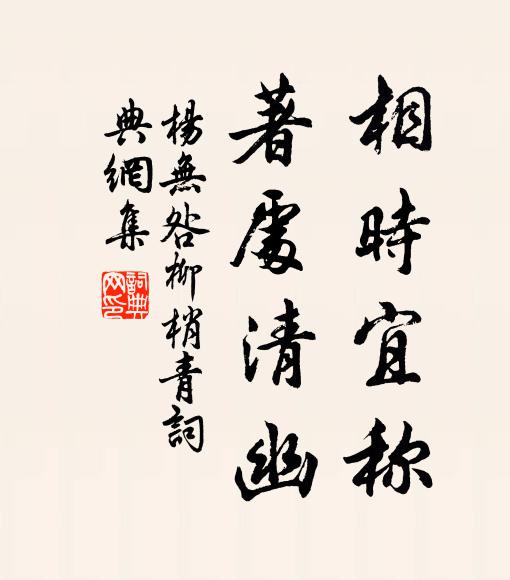 相時宜称
著處清幽
楊無咎柳梢青詞
典網集
詞典
网印